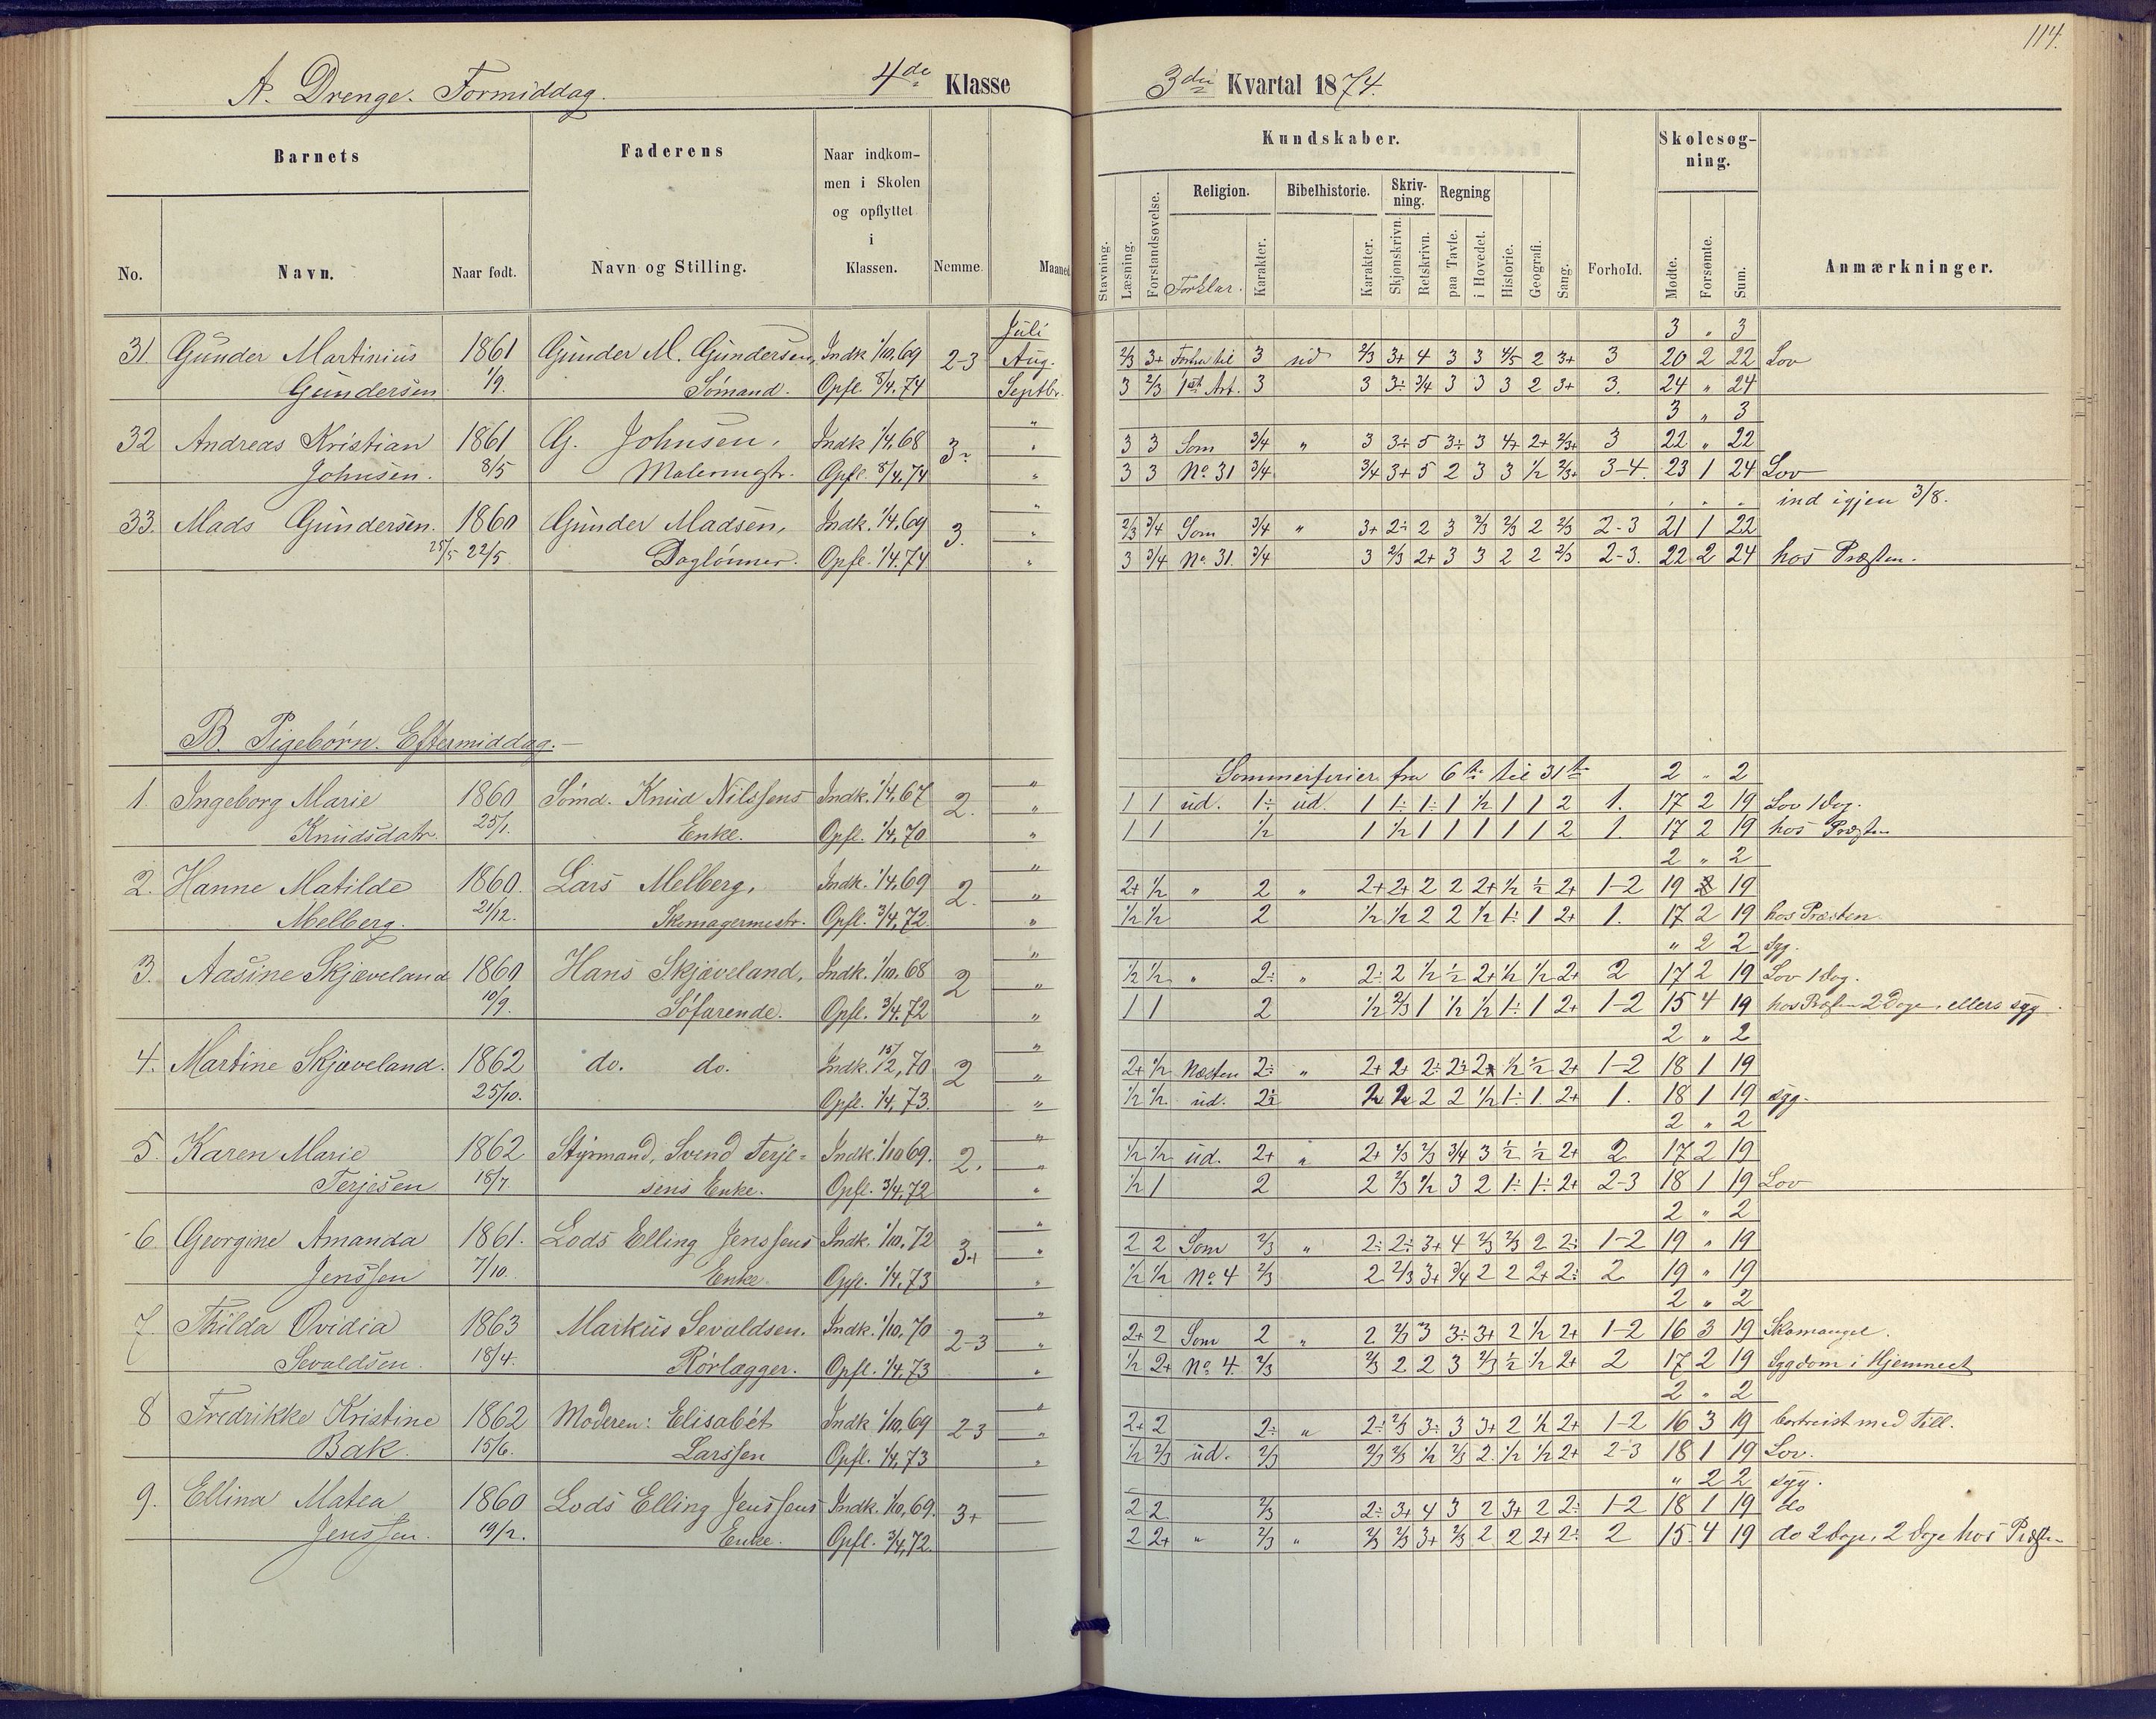 114.
A. Drenge. Formiddag. 4de Klasse 3die Kvartal 1874.
Barnets Faderens Naar indkommen i Skolen og opflyttet i Klassen. Nemme. Maaned Kundskaber. Skolesøgning.
No. Navn. Naar født. Navn og Stilling. Stavning. Læsning. Forstandsøvelse. Religion. Forklar. Karakter. Bibelhistorie. Karakter. Skrivning. Skjønskrivn. Retskrivn. Regning paa Tavle. i Hovedet. Historie. Geografi. Sang. Forhold. Mødte. Forsømte. Sum. Anmærkninger.
Juli 3 " 3
31. Gunder Martinius 1861 Gunder M. Gundersen, Indk 1/10.69 2-3 Aug. 2/3 3+ Fortra til 3 ud 2/3 3+ 4 3 3 4/5 2 3+ 3 20 2 22 Lov
Gundersen 1/9. Sømand. Opfl. 8/4.74 Septbr. 3 2/3 1st Art. 3 3 3÷ 3/4 3 3 3 2 3+ 3. 24 " 24
" 3 " 3
32 Andreas Kristian 1861 G. Johnsen, Indk 1/4.68 3÷ " 3 3 Som 3/4 " 3 3÷ 5 3÷ 3 4+ 2+ 2/3+ 3 22 " 22
Johnsen. 8/5 Malermstr. Opfl. 8/4.74 " 3 3 No. 31 3/4 3/4 3+ 5 2 3 3 1/2 2/3+ 3-4. 23 1 24 Lov
" " " " ind igjen 3/8.
33. Mads Gundersen. 1860 Gunder Madsen, Indk. 1/4.69 3. " 2/3 3/4 Som 3/4 " 3+ 2÷ 2 3 2/3 2/3 2 2/3 2-3 21 1 22
25/5 22/5 Daglønner. Opfl. 1/4.74 " 3 3/4 No. 31. 3/4 3 2/3 2+ 3 3 2 2 2/3 2-3. 22 2 24 hos Præsten.
B. Pigebørn. Eftermiddag.
" Sommerferier fra 6te til 31te 2 " 2
1. Ingeborg Marie 1860 Sømd. Knud Nilssens Indk. 1/4.67 2. " 1 1 ud. 1÷ ud. 1 1÷ 1÷ 1 1/2 1 1 2 1. 17 2 19 Lov 1 Dag.
Knudsdatr. 25/1. Enke. Opfl. 1/4.70 " 1 1 1/2 1 1/2 1 1 1 1 1 2 1. 17 2 19 hos Præsten
" 2 " 2
2. Hanne Matilde 1860. Lars Melberg, Indk. 1/4.69 2. " 2+ 1/2 " 2 " 2+ 2+ 2 2 2+ 1/2 1/2 2+ 1-2 19 19
Melberg. 21/12. Skomagermestr. Opfl. 3/4.72. " 1/2 1/2 2 1/2 1/2 2 2 1/2 1÷ 1 2+ 1. 17 2 19 hos Præsten
" " 2 2 Syg.
3. Aasine Skjæveland 1860 Hans Skjæveland, Indk. 1/10.68 2 " 1/2 1/2 " 2÷ " 2÷ 2 1/2 1/2 2+ 1/2 1/2 2+ 2 17 2 19 Lov 1 Dag.
10/9. Søfarende. Opfl. 3/4.72 " 1 1 2 1/2 2/3 1 1/2 1/2 1÷ 1 2+ 1-2 15 4 19 hos Præsten 2 Dage, ellers syg.
" 2 " 2
4. Martine Skjæveland. 1862 do. do. Indk. 15/2.70 2 " 2+ 1/2 Næsten 2÷ " 2+ 2+ 2÷ 2÷ 2+ 1/2 1/2 2+ 1-2 18 1 19
25/10. Opfl. 1/4.73. " 1/2 1/2 ud. 2÷ 1/2 1/2 2 2 1/2 1÷ 1 2+ 1. 18 1 19 syg.
" 2 " 2
5. Karen Marie 1862 Styrmand, Svend Terje= Indk. 1/10 69. 2. " 1/2 1/2 ud. 2+ " 2+ 2/3 2/3 3/4 3 1/2 1/2 2+ 2 17 2 19
Terjesen 18/7. sens Enke. Opfl. 3/4.72 " 1/2 1 2 2 2/3 1/2 3 2 1÷ 1÷ 2+ 2-3 18 1 19 Lov
" 2 " 2
6 Georgine Amanda 1861. Lods Elling Jenssens Indk. 1/10.72 3+ " 2 2 Som 2/3 " 2÷ 2÷ 3+ 4 2/3 2/3 2 2÷ 1-2 19 " 19
Jenssen 7/10. Enke. Opfl. 1/4.73 " 1/2 1/2 No. 4 2/3 2 2/3 3+ 3/4 2 2 2+ 2÷ 2 19 " 19
" 2 " 2
7. Thilda Ovidia 1863 Markus Sevaldsen. Indk. 1/10.70 2-3 " 2+ 2 Som 2 " 2 2/3 3 3÷ 3+ 2 1/2 2+ 1-2 16 3 19 Skomangel.
Sevaldsen. 18/4. Rørlægger. Opfl. 1/4.73 " 1/2 2+ No. 4. 2/3 2/3 2 2 3 2/3 1/2 1/2 2+ 2 17 2 19 Sygdom i Hjemmet
" 2 " 2
8 Fredrikke Kristine 1862 Moderen: Elisabet Indk 1/10.69 2-3 " 2+ 2 2÷ " 2÷ 2/3 3÷ 3 3+ 2 1/2 2+ 1-2 16 3 19 bortreist med Till.
Bak. 15/6. Larssen Opfl. 1/4.73 " 1/2 2/3 ud. 2/3 2/3 2/3 1/2 2/3 2. 1/2 1/2 2+ 2-3 18 1 19 Lov.
" 2 2 syg.
9. Ellina Matea 1860 Lods Elling Jenssens Indk. 1/10.69. 3+ 2 2 2/3 2÷ 3+ 4 3 2 3+ 2 2÷ 1-2 18 1 19 do
Jenssen. 19/2. Enke. Opfl. 3/4.72. 2 2+ " 2/3 " 2/3 2/3 3+ 2/3 2 2 2+ 2÷ 2 15. 4 19 do 2 Dage, 2 Dage hos Præsten